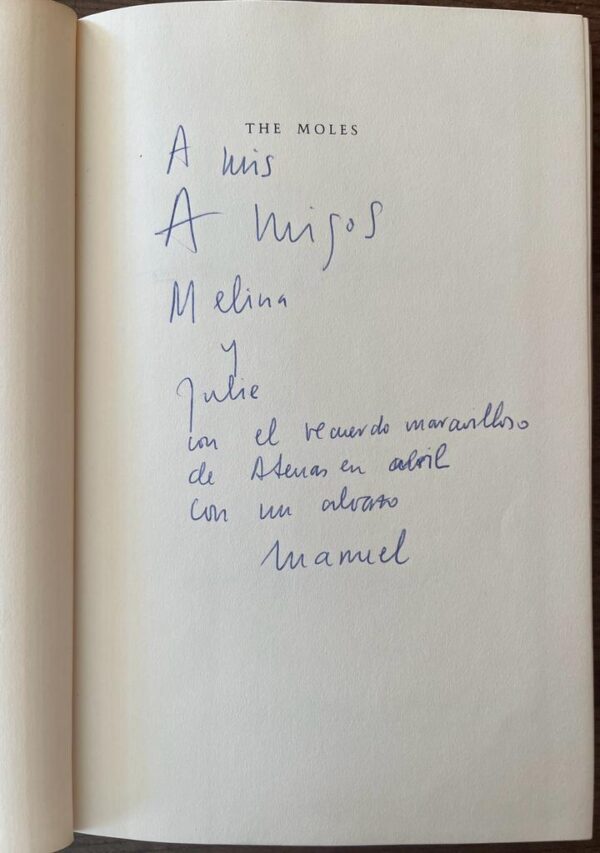 THE MOLES
A mis
Amigos
Melina
y
Julie
con el recuerdo maravilloso
de Atenas en abril
Con un abrazo
Manuel